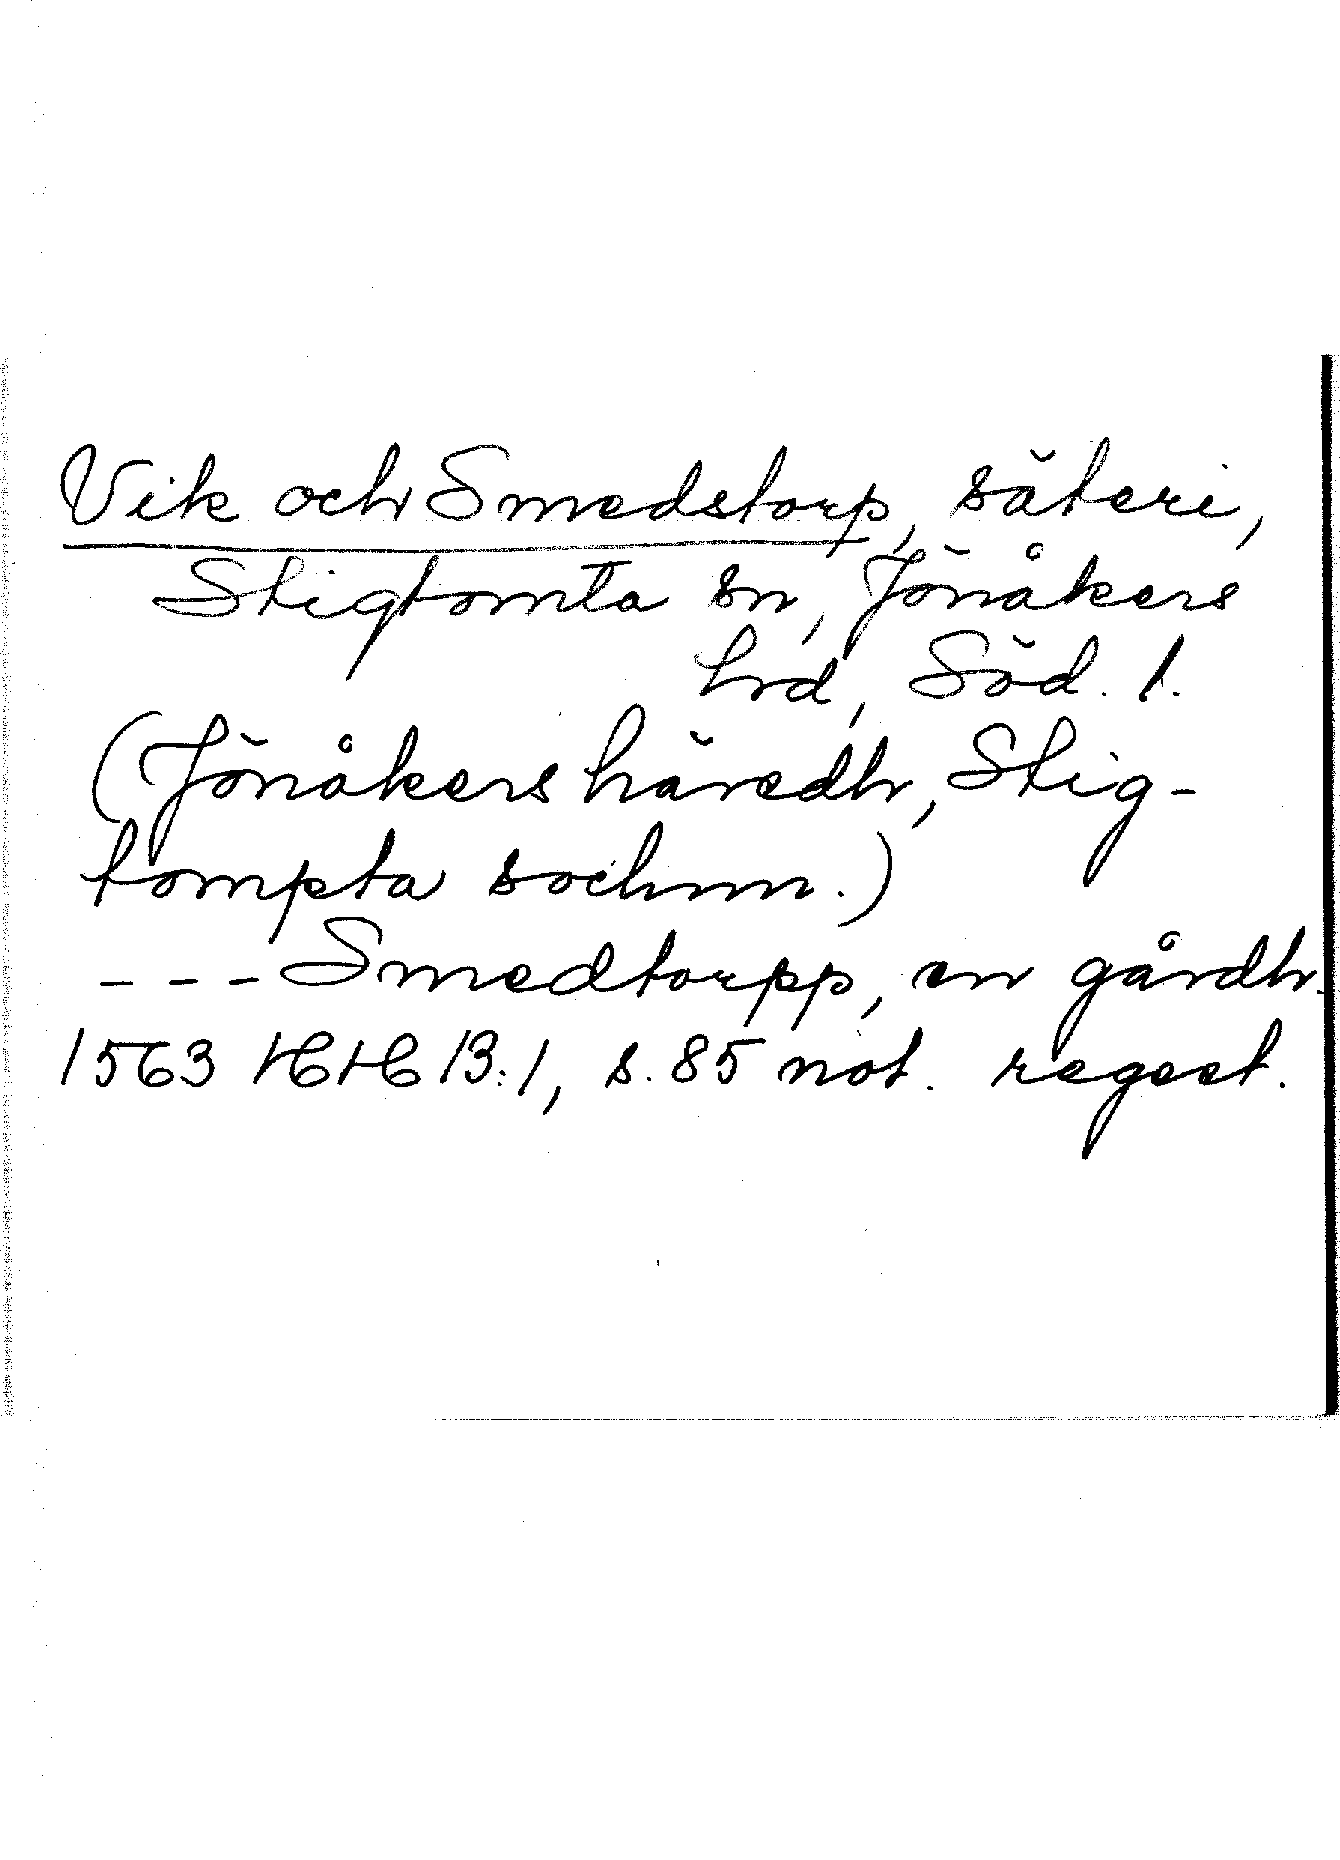 Vik och Smedstorp, säteri,
Stigtomta sn, Jönåkers
hrd, Söd. l.
(Jönåkers häredh, Stig-
tompta sochnn.)
--- Smedtorpp, en gårdh.
1563 HH 13:1, s. 85 not. regest.